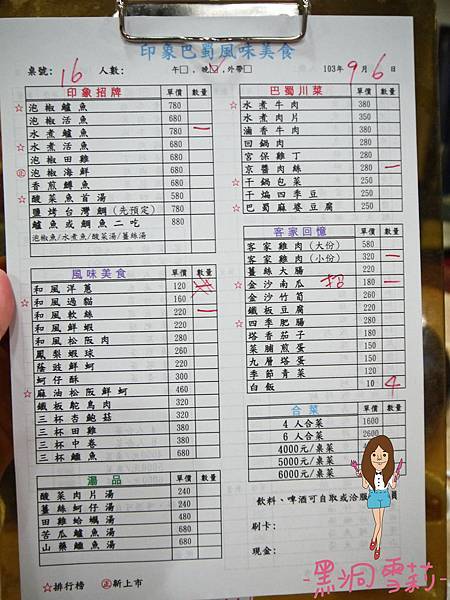 印象巴蜀風味美食
桌號: 16 人數: 午□, 晚☑, 外帶□ 103年 9 月 6 日
印象招牌 單價 數量
☆ 泡椒鱸魚 780
泡椒活魚 680
水煮鱸魚 780 一
☆ 水煮活魚 680
泡椒田雞 680
㊣ 泡椒海鮮 680
香煎鱒魚 680
☆ 酸菜魚首湯 580
鹽烤台灣鯛(先預定) 780
鱸魚或鯛魚二吃 880
泡椒魚/水煮魚/酸菜湯/薑絲湯
風味美食 單價 數量
和風洋蔥 120
☆ 和風過貓 160
和風軟絲 220 一
和風鮮蝦 220
和風松阪肉 280
鳳梨蝦球 260
蔭豉鮮蚵 220
蚵仔酥 280
☆ 麻油松阪鮮蚵 460
鐵板鴕鳥肉 320
三杯杏鮑菇 220
三杯田雞 380
三杯中卷 380
三杯鱸魚 680
湯品 單價 數量
酸菜肉片湯 240
薑絲蚵仔湯 240
田雞蛤蠣湯 480
苦瓜鱸魚湯 680
山藥鱸魚湯 680
☆排行榜 ㊣新上市
巴蜀川菜 單價 數量
☆ 水煮牛肉 380
水煮肉片 350
滷香牛肉 380
回鍋肉 280
宮保雞丁 280
京醬肉絲 280 一
☆ 干鍋包菜 250
干煸四季豆 250
☆ 巴蜀麻婆豆腐 250
客家回憶 單價 數量
客家雞肉(大份) 580
客家雞肉(小份) 320 一
薑絲大腸 220
☆ 金沙南瓜 招 180 一
金沙竹筍 260
鐵板豆腐 220
☆ 四季肥腸 280
塔香茄子 220
菜脯煎蛋 150
九層塔蛋 150
季節青菜 120
白飯 10 4
合菜 單價 數量
4人合菜 1600
6人合菜 2600
4000元/桌菜 4000
5000元/桌菜
6000元/桌菜
飲料、啤酒可自取或洽服 員
刷卡:
現金:
-黑洞雪莉-